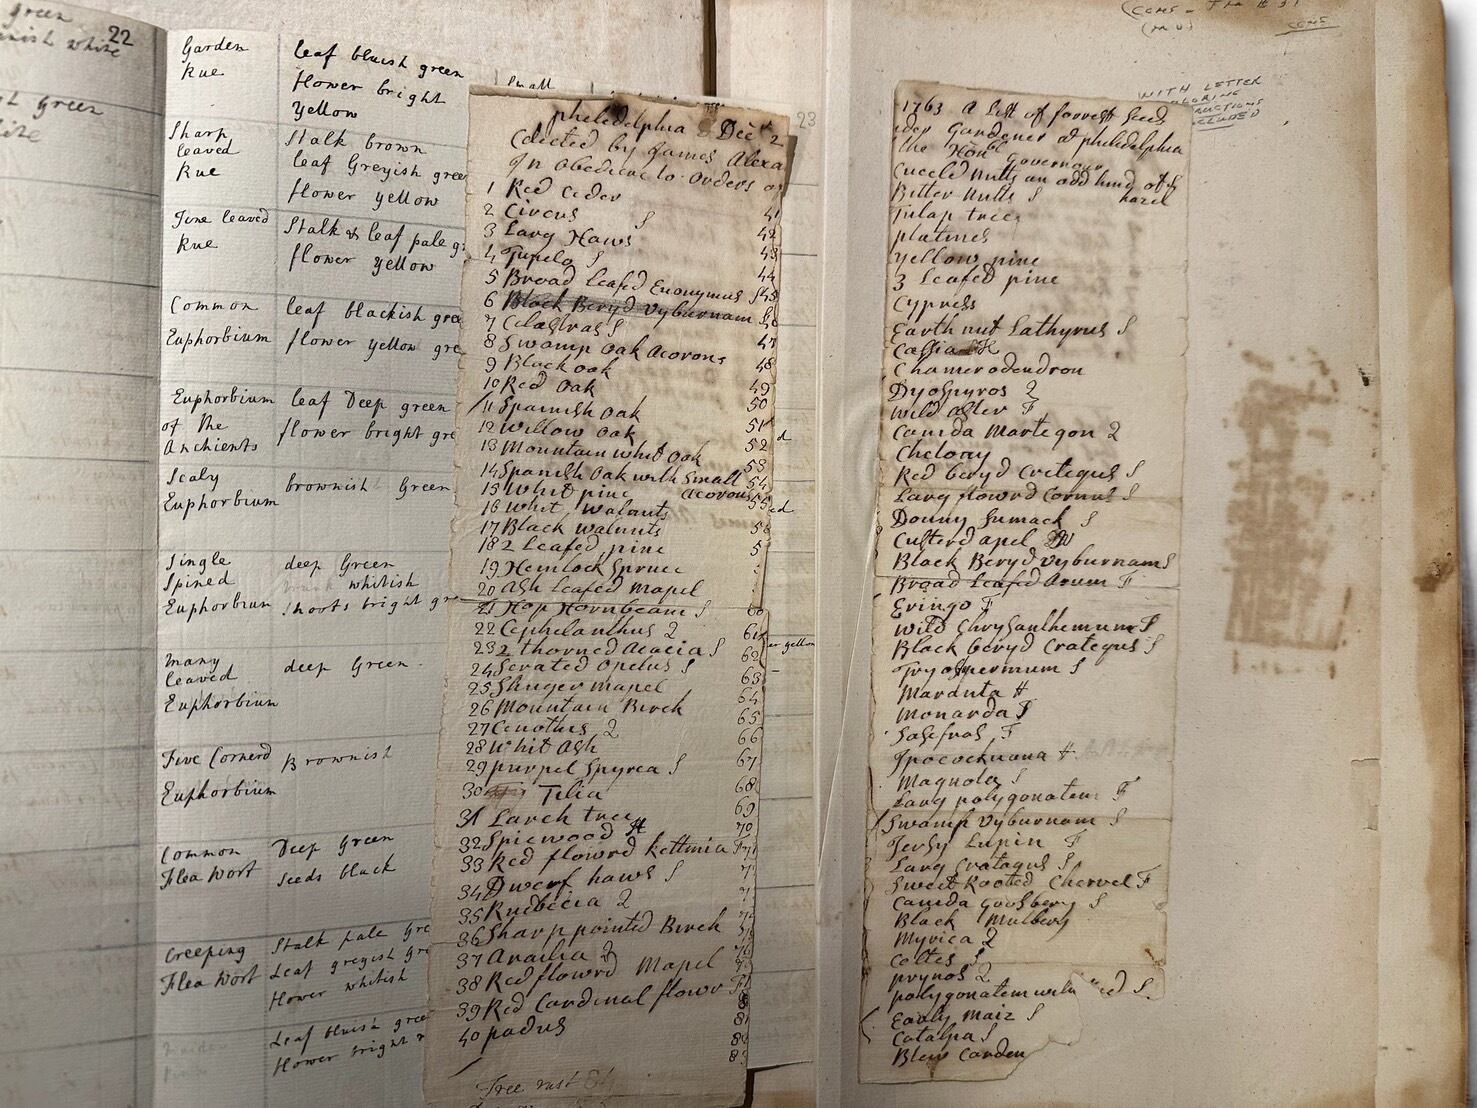 green
22
white
green
Garden leaf bluish green
Rue flower bright
yellow
Small
Sharp Stalk brown
leaved leaf Greyish gree
Rue flower yellow
Fine leaved Stalk & leaf pale g
Rue flower yellow
Common leaf blackish gre
Euphorbium flower yellow gre
Euphorbium leaf Deep green
of the flower bright gre
Anchients
Scaly brownish Green
Euphorbium
Single deep Green
Spined whitish
Euphorbium Shoots bright gr
many deep Green
leaved
Euphorbium
Five Cornerd Brownish
Euphorbium
Common Deep Green
Flea Wort Seeds black
Creeping Stalk pale Gre
Flea Wort Leaf greyish gre
flower whitish
Leaf bluish gree
flower bright
23
philedelphia Decr 2
Colected by James Alexa
In obedienc to orders
1 Red Ceder
2 Circus S 41
3 Larg Haws 42
4 Tupelo S 43
5 Broad Leafed Euonymus S 45
6 Black Beryd Vyburnam
7 Celastras S 47
8 Swamp Oak Acorons 48
9 Black oak 49
10 Red Oak 50
11 Spanish Oak 51
12 Willow Oak 52
13 Mountain whit Oak 53
14 Spanish Oak with Small 54
15 Whit pine Acorons 55
16 Whit Walnuts
17 Black walnuts
18 2 Leafed pine
19 Hemlock Spruce
20 Ash Leafed Mapel
21 Hop Hornbeam S 60
22 Cephelanthus 2 61
23 2 thorned Acacia S 62
24 Serated Opelus S 63
25 Shuger Mapel 64
26 Mountain Birch 65
27 Cenothus 2 66
28 Whit Ash
29 purpel Spyrea S 67
30 Tilia 68
31 Larch tree 69
32 Spicwood H 70
33 Red flowrd kettmia F 71
34 Dwerf haws S
35 Rudbecia 2
36 Sharp pointed Birch
37 Aralia 2
38 Red flowrd Mapel
39 Red Cardinal flowr F
40 padus 81
Tree rust 84
WITH LETTER
1763 A list of forrest Seed
Gardener at philedelphia
the Honbl Governour
Cuceld Nutts an odd kind of
hazel
Bitter Nutts S
Tulap tree
platines
yellow pine
3 Leafed pine
Cypress
Earth nut Lathyrus S
Cassia H
Chamerodendron
Dyospyros 2
Wild Aster F
Canida Martegon 2
Chelony
Red beryd Cretegus S
Larg flowrd Cornus S
Downy Sumack S
Custerd apel
Black Beryd Vyburnam S
Broad Leafed Arum F
Eringo F
Wild Chrysanthemum F
Black beryd Crategus S
Tryospermum S
Maranta H
Monarda F
Sasefras, F
Ipocockuana H
Magnola S
Larg polygonatem F
Swamp Vyburnam S
Jersy Lupin F
Larg Cratagus S
Sweet Rooted Chervel F
Canida Goosbery S
Black Mulbery
Myrica 2
Celtes S
prynos 2
polygonatem with S
Early Maiz S
Catalpa S
Blew Carden